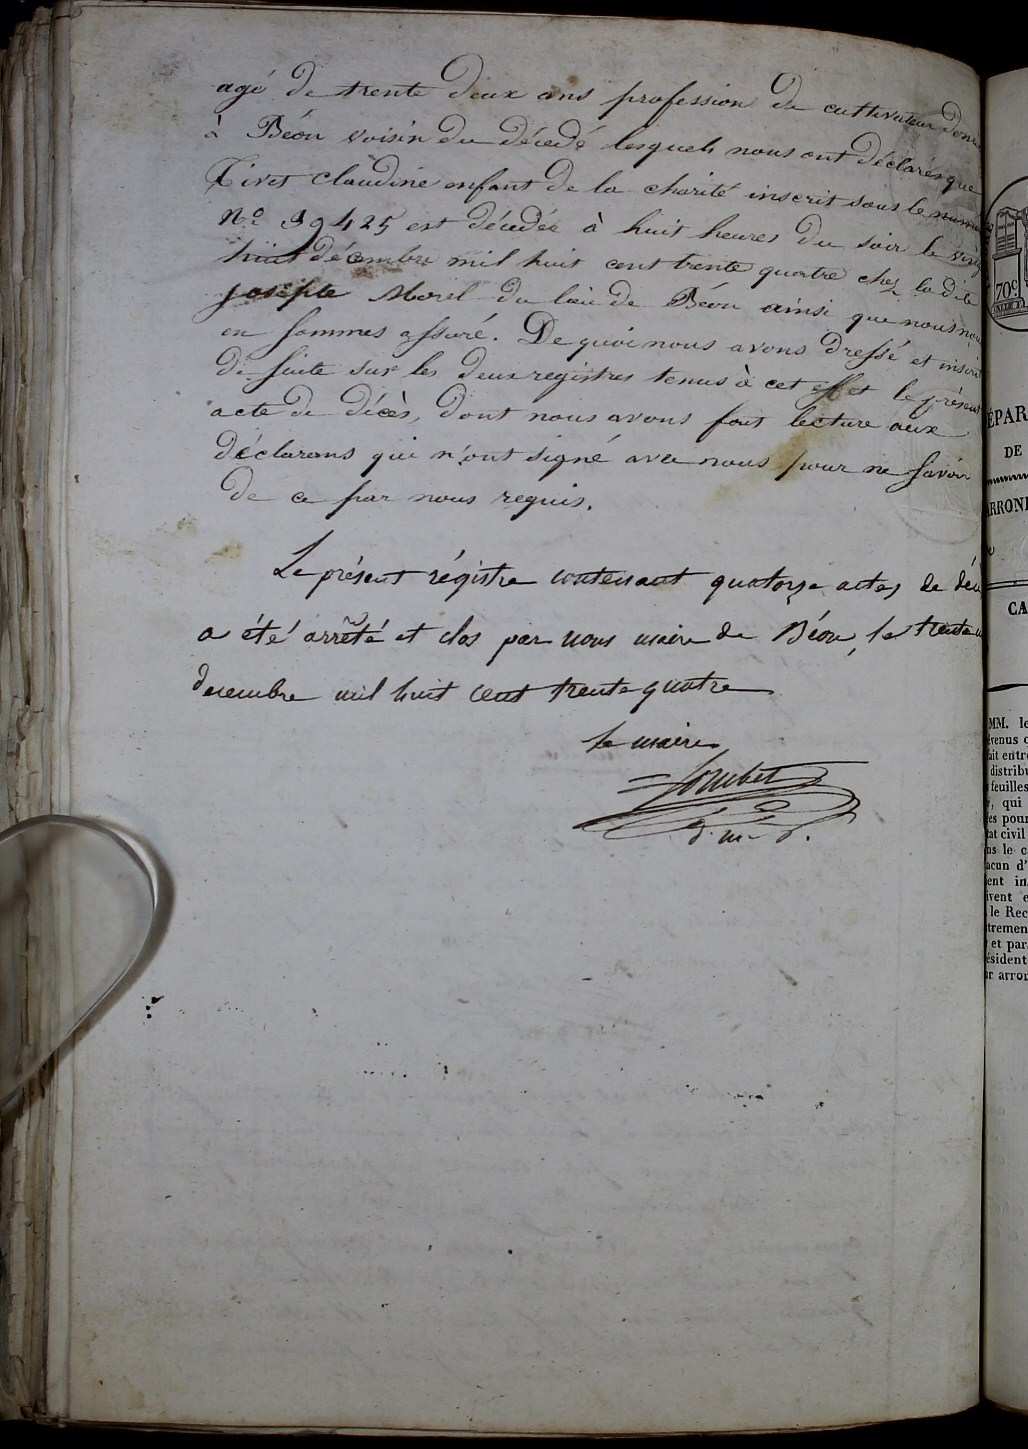 agé de trente deux ans profession de cultivateur dom
à Béon voisin du décedé lesquels nous ont déclarés que
Tivet Claudine enfant de la charité inscrit sous le num
No 39425 est décedée à huit heures du soir le ving
huit décembre mil huit cent trente quatre chez la dite
Josepte Morel du lieu de Béon ainsi que nous nou
en sommes assuré. De quoi nous avons dressé et inscrit
de suite sur les deux registres tenus à cet effet le présent
acte de décès, dont nous avons fait lecture aux
déclarans qui n'ont signé avec nous pour ne savoir
de ce par nous requis.
Le présent régistre contenant quatorze actes de déc
a été arrêté et clos par nous maire de Béon, le trente u
decembre mil huit cent trente quatre
le maire
d. m. p.
70c.
ÉPAR
DE
ARROND
CA
MM. le
évenus q
fait entre
distribu
feuilles
, qui
es pour
tat civil
ns le c
acun d'
ent in
ivent e
le Rec
tremen
et par
ésident
ur arron